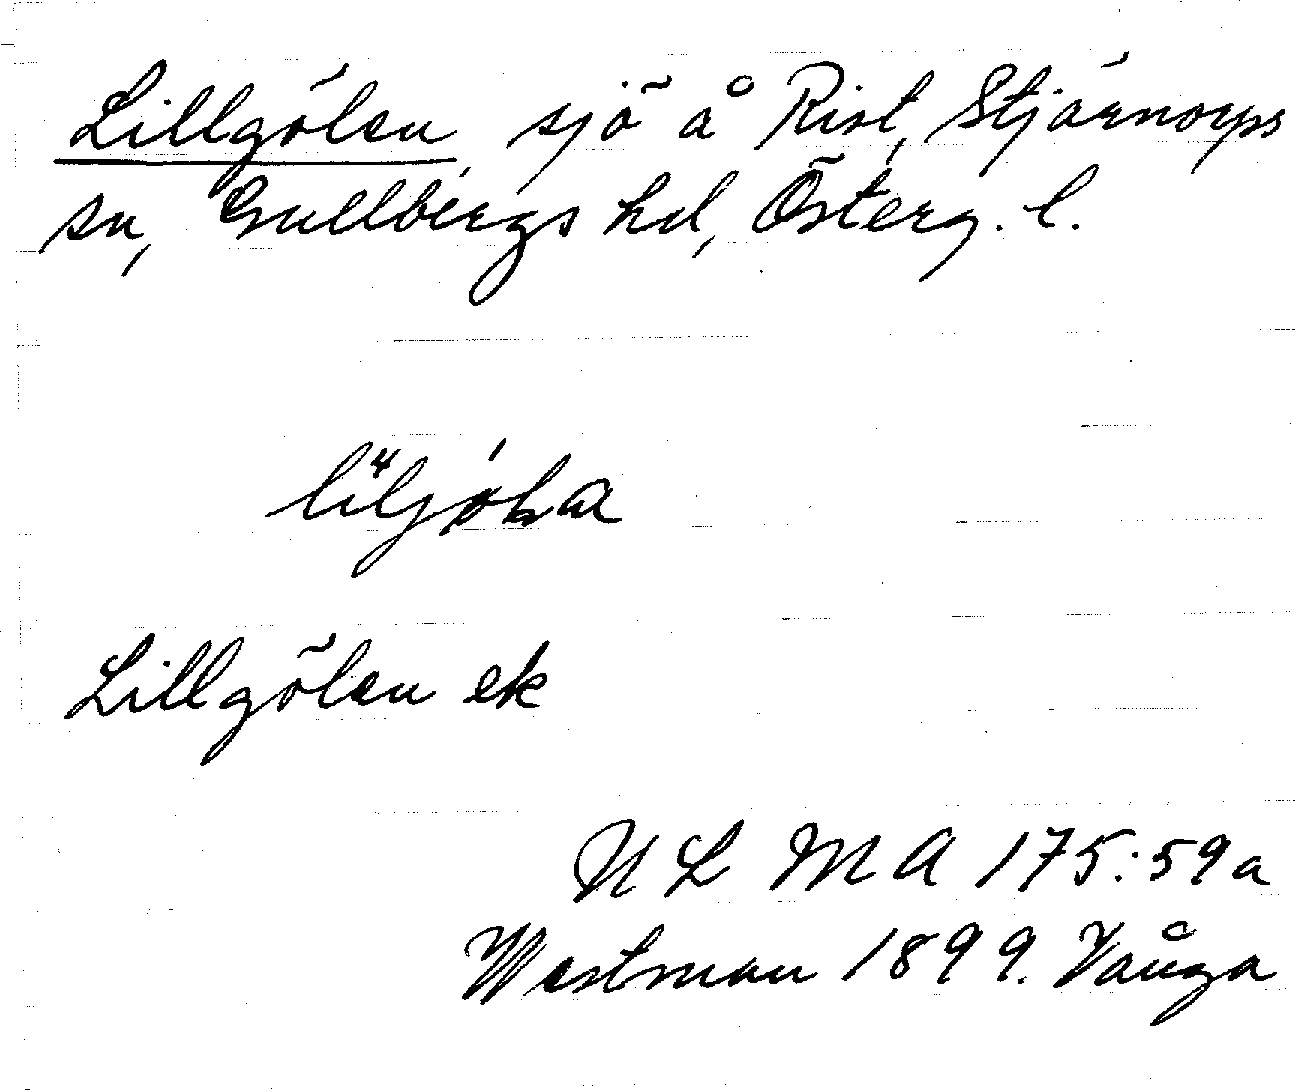 Lillgölen, sjö å Rist, Stjärnorps
sn, Gullbergs hd, Österg. l.
Lillgölen ek
ULMA 175:59a
Westman 1899. Vånga